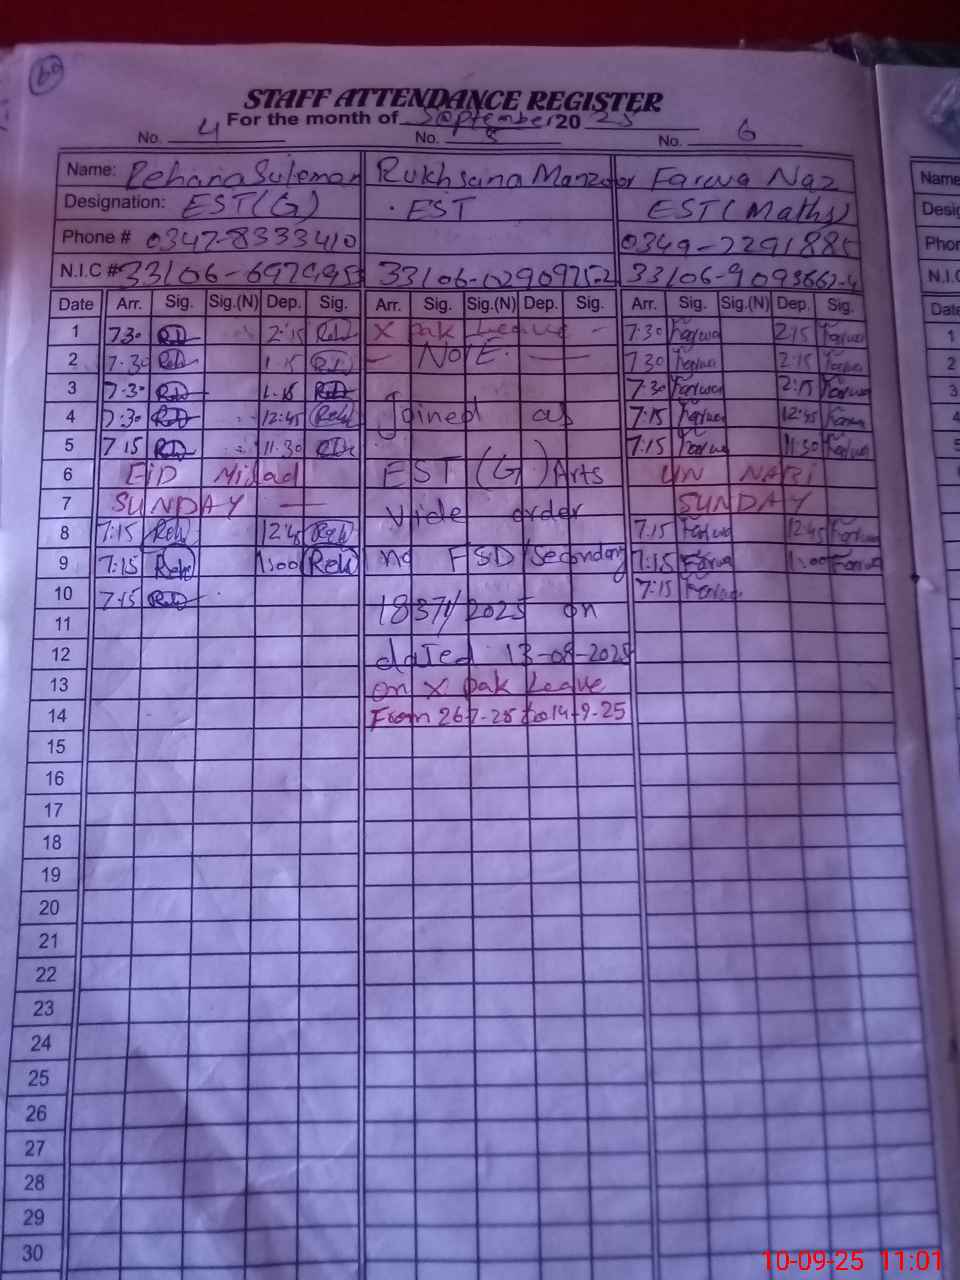 60
STAFF ATTENDANCE REGISTER
For the month of September 20 25
No. 4 No. 5 No. 6
Name: Rehana Suleman Rukhsana Manzoor Farwa Naz
Designation: EST(G) EST EST(Maths)
Phone # 0347-8333410 0349-7291885
N.I.C # 33106-
Date Arr. Sig. Sig.(N) Dep. Sig. Arr. Sig. Sig.(N) Dep. Sig. Arr. Sig. Sig.(N) Dep. Sig.
1 7:30 2:15 X pak Leave - 7:30 Farwa 2:15 Farwa
2 7:30 1:15 - NOTE. - 7:30 Farwa 2:15 Farwa
3 7:30 1:15 7:30 Farwa 2:15 Farwa
4 7:30 12:45 Reh Joined as 7:15 Farwa 12:45 Farwa
5 7:15 11:30 7:15 Farwa 11:30 Farwa
6 EiD Milad EST (G) Arts
7 SUNDAY - SUNDAY
8 7:15 Reh 12:45 Reh Vide order 7:15 Farwa 12:45 Farwa
9 7:15 Reh 1:00 Reh no FSD/Secondary 7:15 Farwa 1:00 Farwa
10 7:15 7:15 Farwa
11 18371/2025 on
12 dated 13-08-2025
13 on X pak Leave
14 From 26-7-25 to 14-9-25
15
16
17
18
19
20
21
22
23
24
25
26
27
28
29
30
Name
Desig
Phor
N.I.C
Date
1
2
3
4
5
10-09-25 11:01